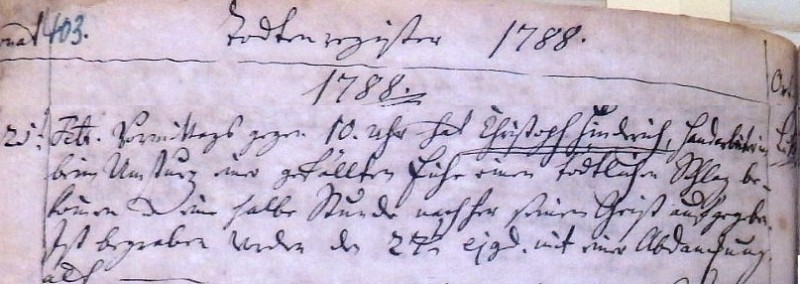 403. Todtenregister 1788.
1788.
25. Febr. Vormittags gegen 10. Uhr hat Christoph Hinderich, Handarbeiter
beim Umsturz einer gefällten Eiche einen todtlichen Schlag be-
komen u. eine halbe Stunde nachher seinen Geist aufgegeben.
Ist begraben worden den 27ten ejsd. mit einer Abdankung.
alt